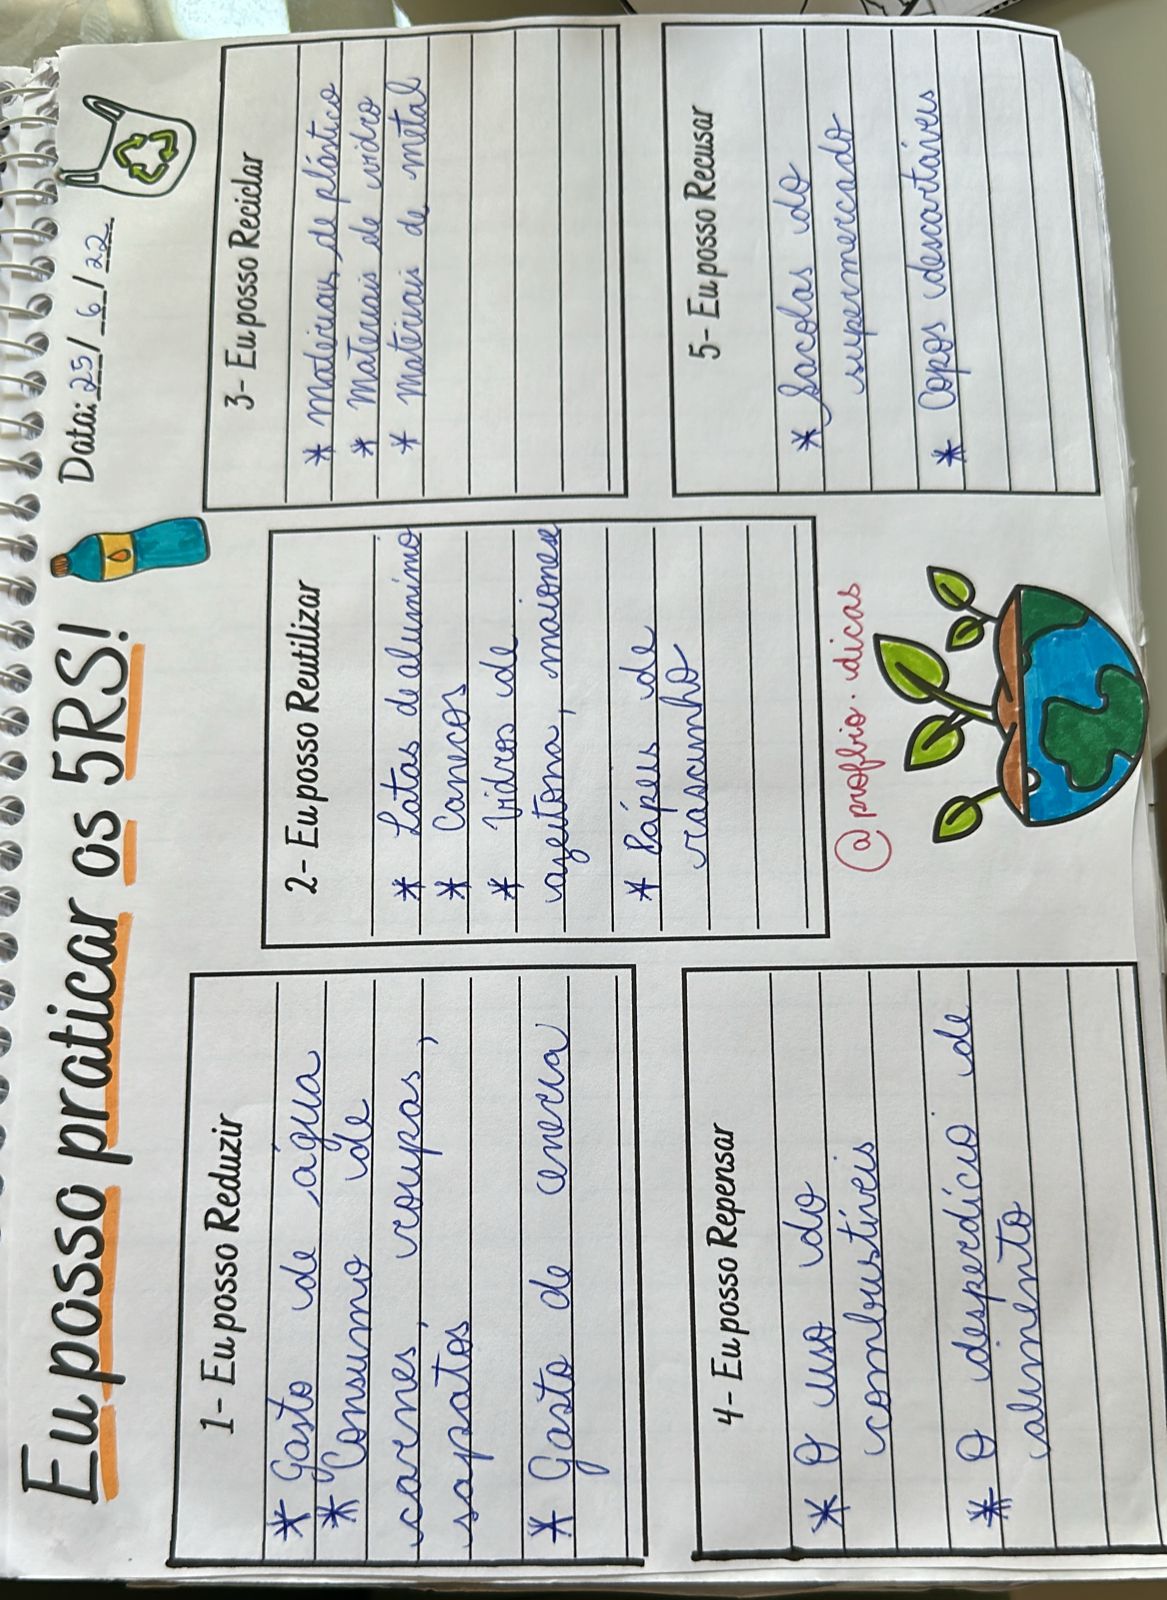 Eu posso praticar os 5RS!
Data: 25/6/22
1- Eu posso Reduzir
* Gasto de água
* Consumo de
carnes, roupas,
sapatos
* Gasto de enercia
2- Eu posso Reutilizar
* Latas de alumínio
* Canecos
* Vidros de
azeitona, maionese
* Papéis de
rascunho
3- Eu posso Reciclar
* materiais de plástico
* Materiais de vidro
* Materiais de metal
4- Eu posso Repensar
* O uso do
combustíveis
* O desperdício de
alimento
5- Eu posso Recusar
* Sacolas do
supermercado
* Copos descartáveis
@profbio.dicas